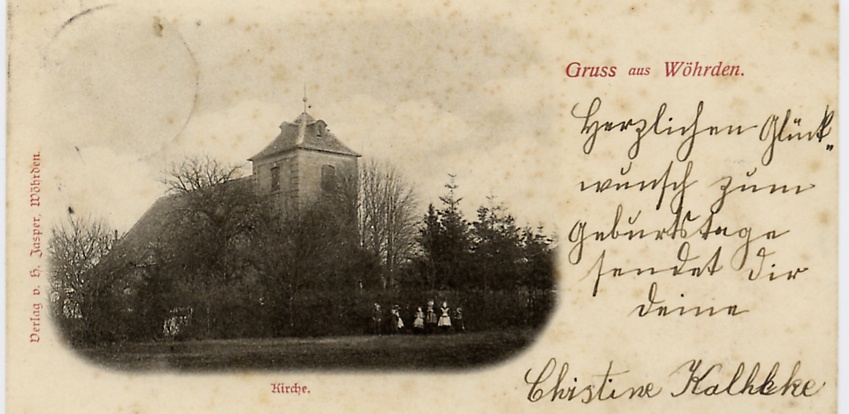 Gruss aus Wöhrden.
Herzlichen Glück„
wunsch zum
Geburtstage
sendet Dir
deine
Christine
Kirche.
Verlag v. H. Jasper, Wöhrden.